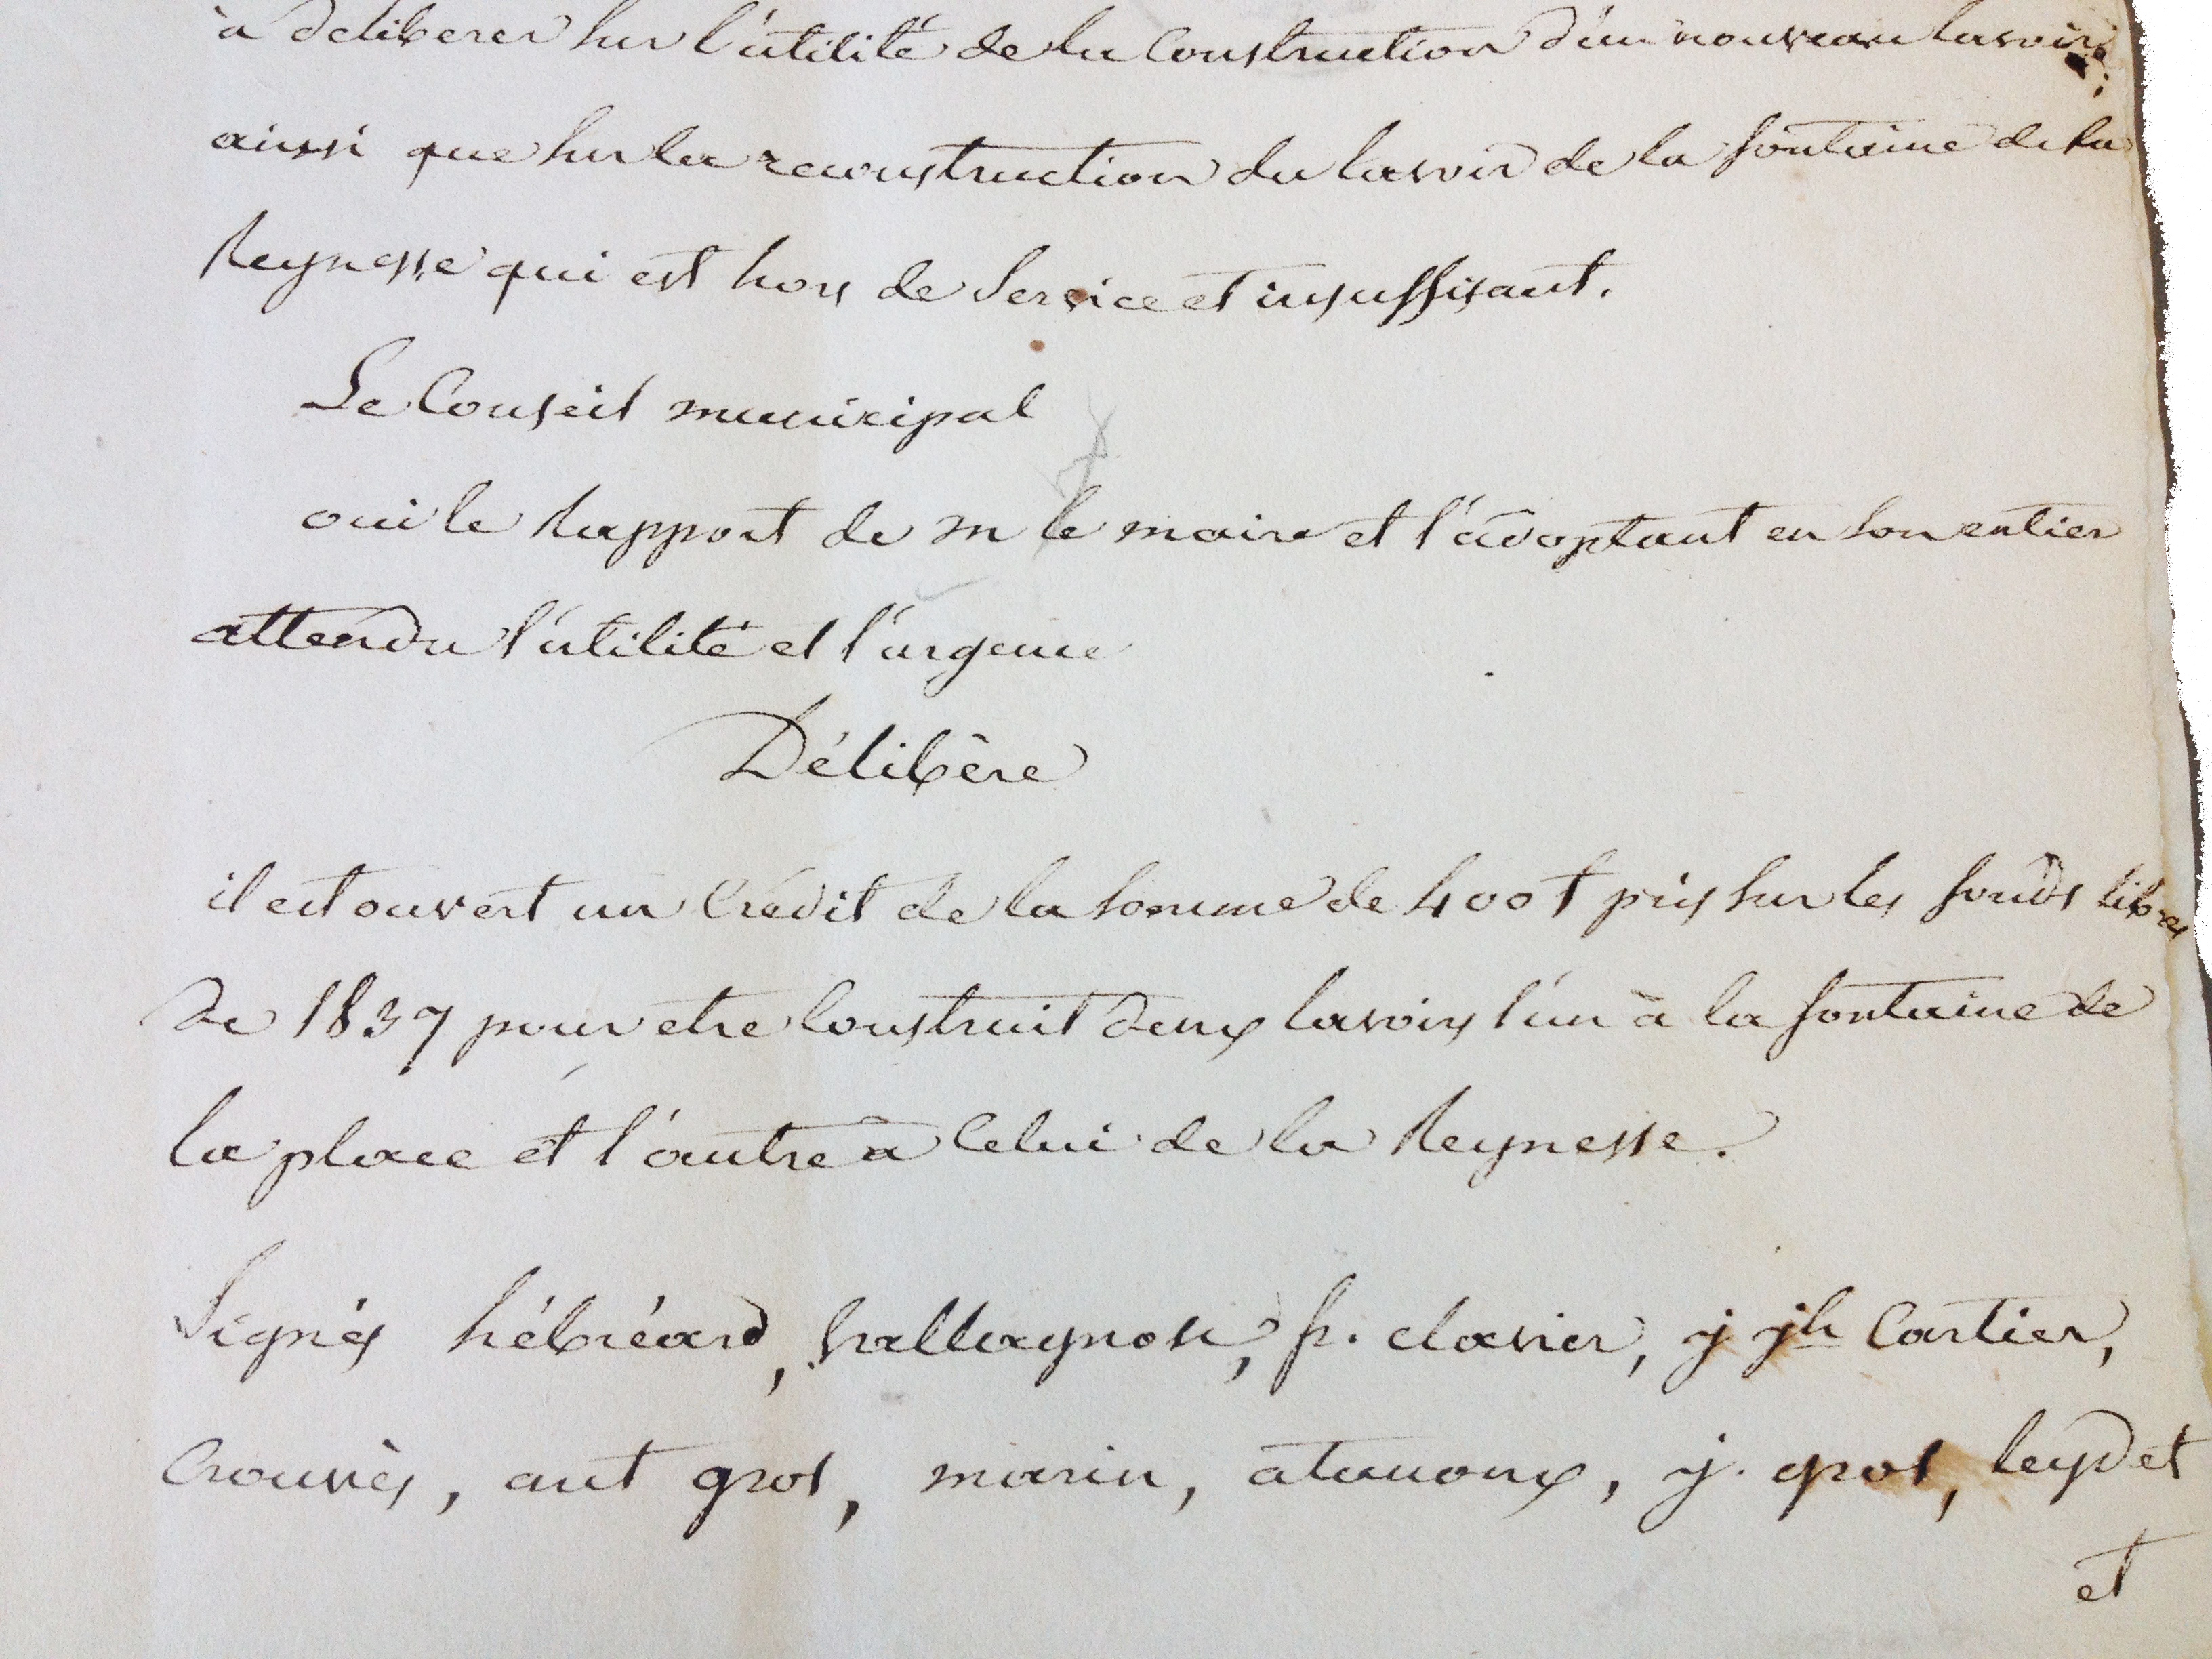 à deliberer sur l'utilité de la Construction d'un nouveau lavoir,
ainsi que sur la reconstruction du lavoir de la fontaine de la
Reynesse qui est hors de Service et insuffisant.
Le Conseil municipal
oui le rapport de m le maire et l'adoptant en son entier
attendu l'utilité et l'urgence
Délibère
il est ouvert un Crédit de la somme de 400 f pris sur les fonds libres
de 1837 pour etre Construit deux lavoirs l'un à la fontaine de
la place et l'autre à Celui de la Reynesse.
Signés hébréard, fr. clavier, j jh Cartier,
Crouriès, ant gros, marin, atanoux, j. gros, leydet
et